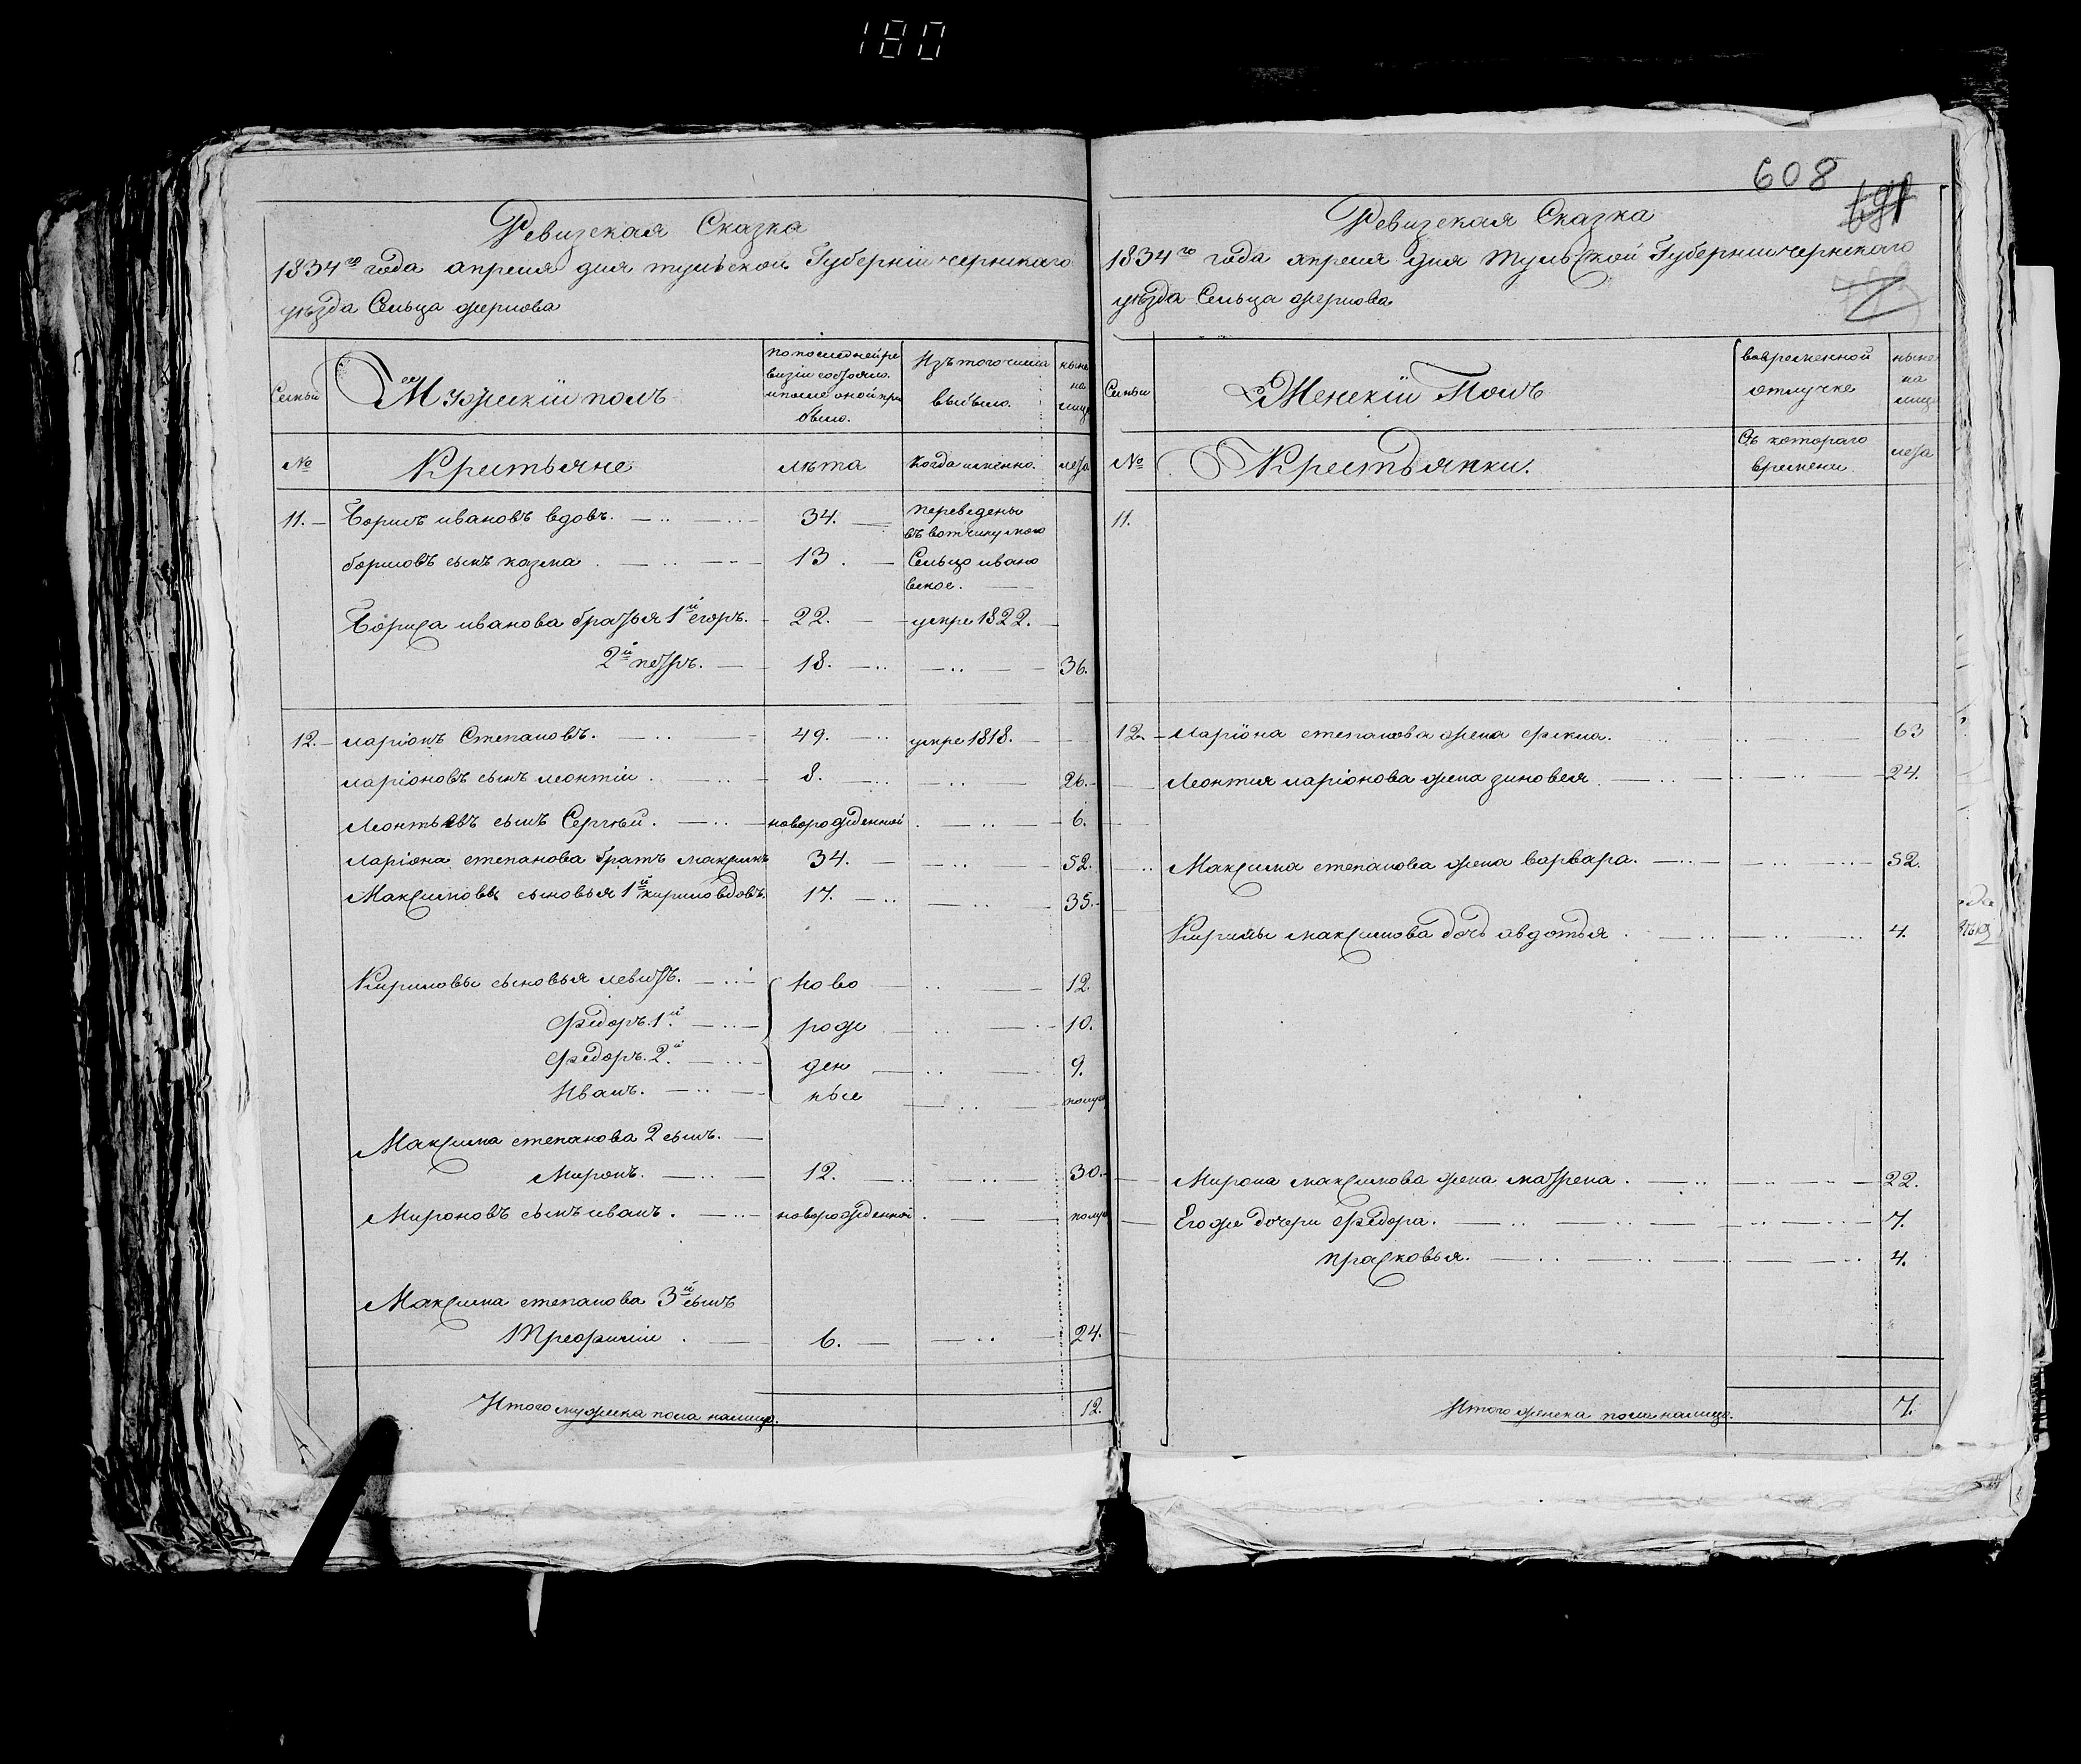 180
Ревизская Сказка
1834го года апреля дня тульской Губерніи чернскаго
уѣзда Сельца жернова
Семьи
Мужескій полъ
по последней ре
визіи состояло
и после оной при
было.
Изъ того числа
выбыло.
ныне
на
лицо
№
Крестьяне
лѣта
Когда именно.
лета
11. Борисъ ивановъ вдовъ. 34. переведены
въ вотчину мою
борисовъ сынъ козма 13. Сельцо ивано
вское.
Бориса иванова братья 1й егоръ. 22. умре 1822.
2й петръ. 18. 36.
12. ларіонъ Степановъ. 49. умре 1818.
ларіоновъ сынъ леонтіи. 8. 26.
леонтьевъ сынъ Сергѣй. новорожденной. 6.
ларіона степанова братъ максимъ 34. 52.
Максимовы сыновья 1й кирило вдовъ. 17. 35.
Кириловы сыновья левистъ. ново 12.
Фѣдоръ. 1й рож 10.
Фѣдоръ. 2й ден 9.
Иванъ. ные полуго
Максима степанова 2 сынъ.
Миронъ. 12. 30.
Мироновъ сынъ иванъ. новорожденной. полуго
Максима степанова 3й сынъ
Трефилій. 6. 24.
Итого мужеска пола налицо. 12.
608
Ревизская Сказка
1834го года апреля дня Тульской Губерніи чернскаго
уѣзда Сельца жернова
Семьи
Женскій Полъ
во временной
отлучке
ныне
на
лицо
№
Крестьянки.
Съ котораго
времени
лета
11.
12. Ларіона степанова жена фекла. 63
Леонтия ларіонова жена зиновея 24.
Максима степанова жена варвара. 52.
Кирилы максимова дочь авдотья. 4.
Мирона максимова жена матрена. 22.
Его же дочери Фѣдора. 7.
прасковья. 4.
Итого женска пола налицо. 7.